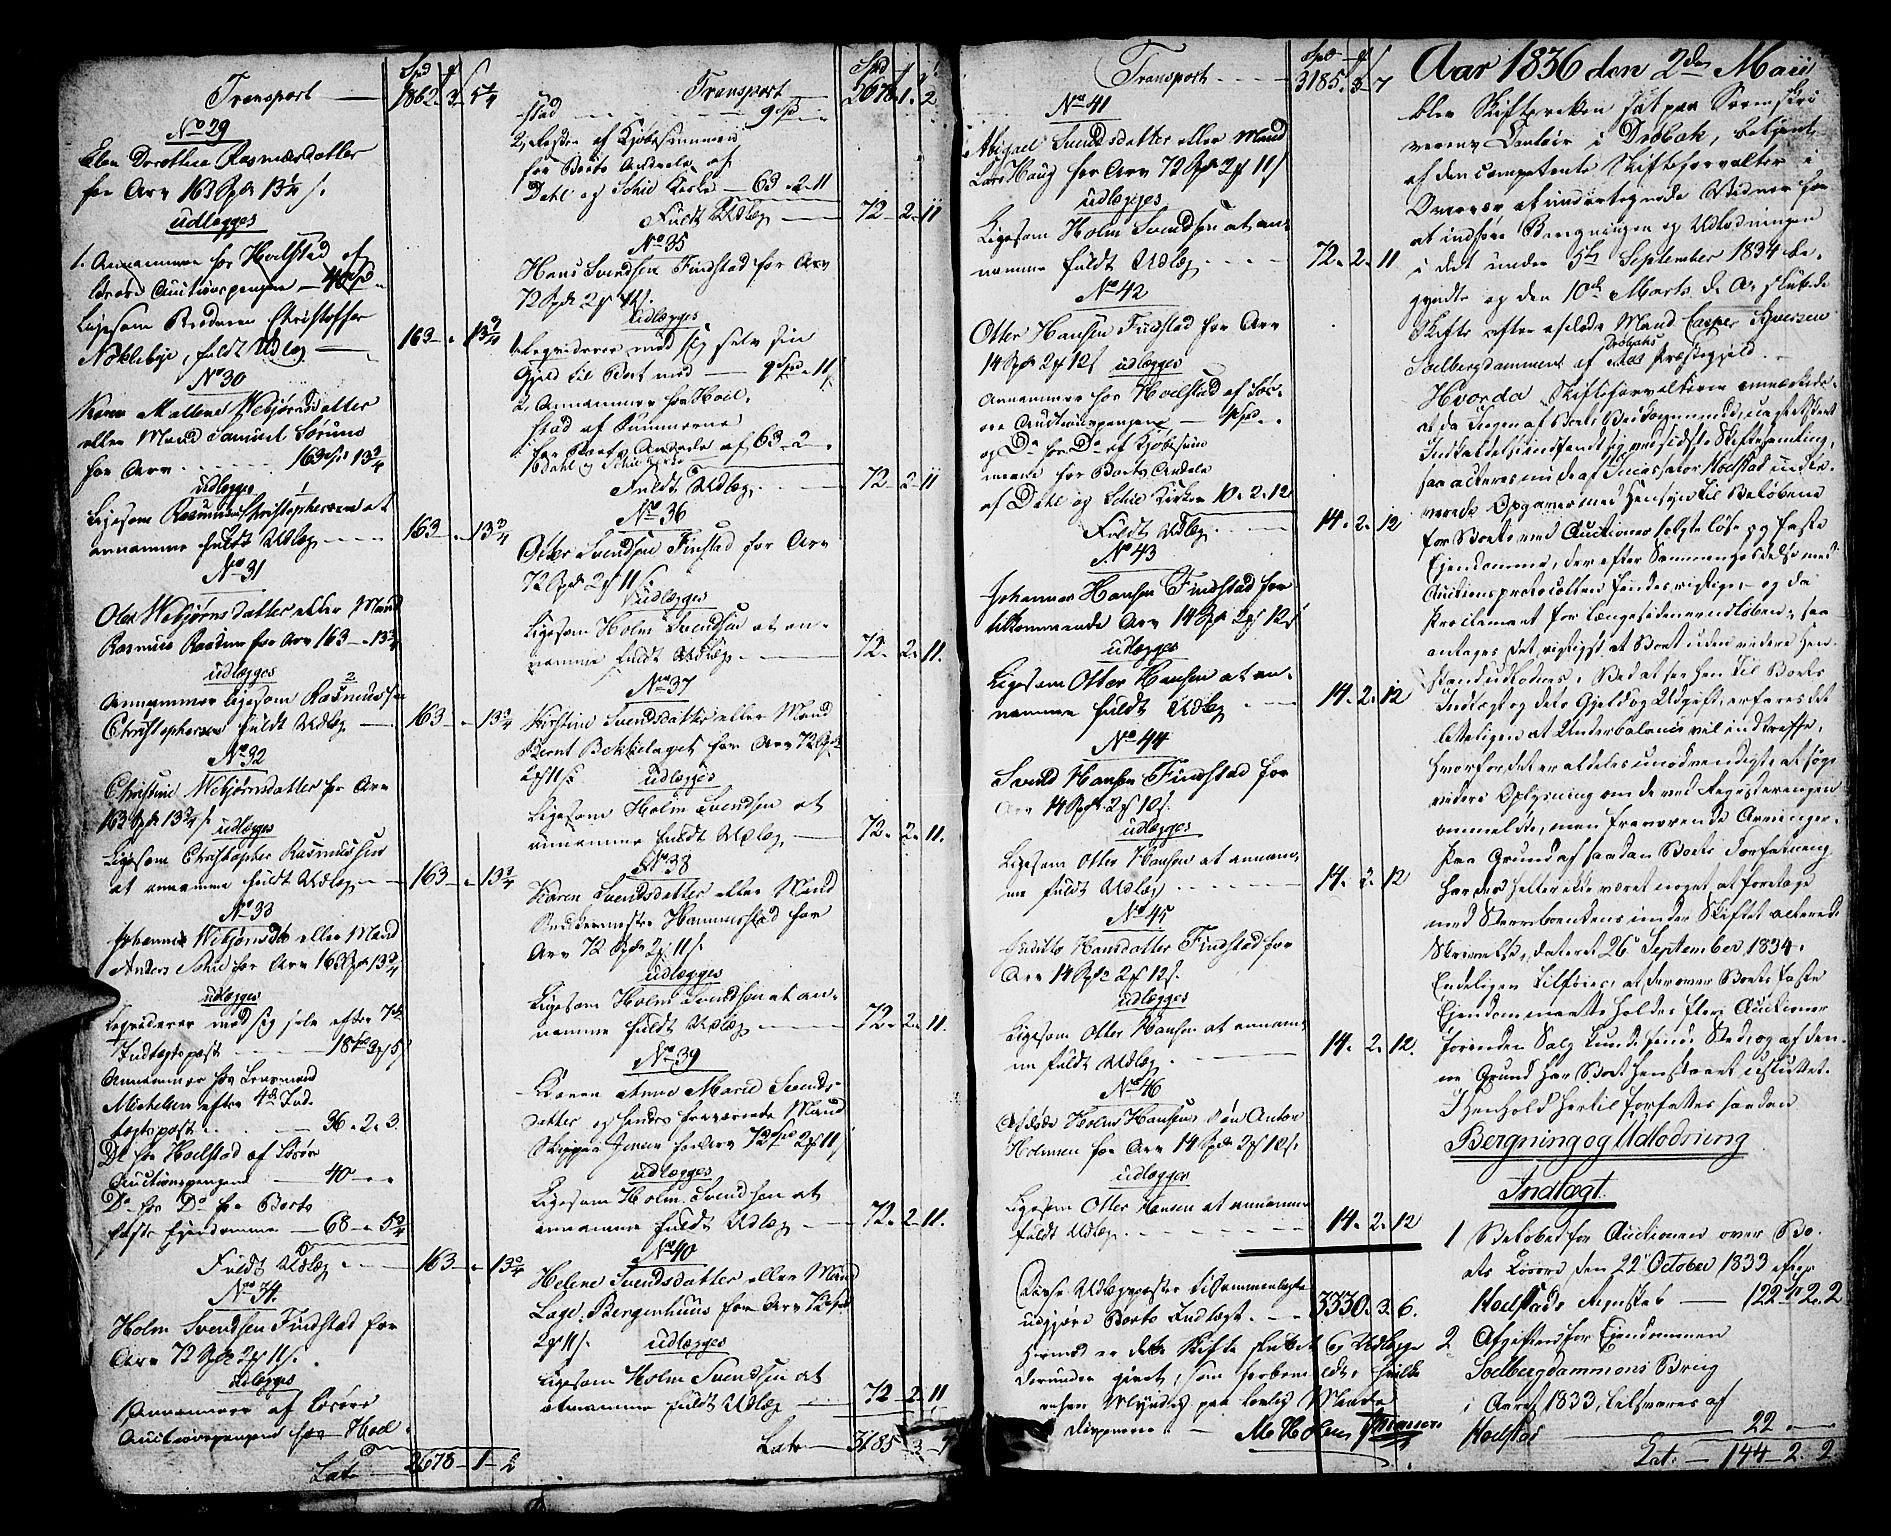 Transport — 1862. 3. 5¾
No 29
Elen Dorothea Rasmusdatter
for Arv 163 Spdr 13¾ s.
udlægges
1. Annammer hos Hoelstad af
Løsøre Auctionspengene — 40 Spd
Ligesom Broderen Christoffer
Nøklebye, fuldt Udlæg — 163 — " 13¾
No 30
Karen Malene Webjørnsdatter
eller Mand Samuel Sørum
for Arv — 163 Spd 13¾
udlægges
Ligesom Rasmus Christophersen at
annamme fuldt Udlæg — 163 — " 13¾
No 31
Olea Webjørnsdatter eller Mand
Rasmus for Arv 163 — " 13¾
udlægges
Annammer ligesom Rasmus
Christophersen fuldt Udlæg — 163 — " 13¾
No 32
Christine Webjørnsdatter for Arv
163 Spdr 13¾ s.
udlægges
Ligesom Christopher Rasmussen
at annamme fuldt Udlæg — 163 — " 13¾
No 33
Johanne Webjørnsdtr eller Mand
Anders Schie for Arv 163 Spdr 13¾
udlægges
Liqviderer med sig selv efter 7de
Indtægtspost — 18 3 5
Annammer hos Lensmand
Michelsen efter 4de Ind-
tægtspost — 36. 2. 3.
Do hos Hoelstad af Løsøre
Auctionspengene — 40 — "
Do hos Do for Boets
faste Ejendomme — 68 — 5¾
Fuldt Udlæg — 163 — " 13¾
No 34.
Holm Svendsen Findstad for
Arv 72 Spdr 2 11 s.
udlægges
1, Annammer af Løsøre
Auctionspengene hos Hoel-
Lat. 2678 — 1 — 2
Transport — 2678. 1. 2
stad — 9 Spd
2, Resten af Kjøbesummen
for Boets Andeele af
Dahl og Schie Kirke — 63. 2. 11
Fuldt Udlæg — 72. 2. 11
No 35
Hans Svendsen Findstad for Arv
72 Spdr 2 11 s.
udlægges
1, Liqviderer med sig selv sin
Gjeld til Boet med — 9 Spd " 11
2, Annammer hos Hoel-
stad af Summerne
for Boets Andeele af 63 — 2 "
Dahl og Schie Kirke
Fuldt Udlæg — 72. 2. 11
No 36
Otter Svendsen Finstad for Arv
72 Spdr 2 11 s.
Udlægges
Ligesom Holm Svendsen at an-
namme fuldt Udlæg — 72. 2. 11.
No 37
Kirstine Svendsdatter eller Mand
Bernt Bekkelaget for Arv 72 Spdr
2 11 s.
udlægges
Ligesom Holm Svendsen at
annamme fuldt Udlæg — 72. 2. 11.
No 38
Karen Svendsdatter eller Mand
Hammerstad for
Arv 72 Spdr 2 11 s.
udlægges
Ligesom Holm Svendsen at an-
namme fuldt Udlæg — 72. 2. 11.
No 39
Karen Anne Marie Svends-
datter og hendes fraværende Mand
Skipper Jensen for Arv 72 Spd 2 11
udlægges
Ligesom Holm Svendsen at
annamme fuldt Udlæg — 72. 2. 11.
No 40
Helene Svendsdatter eller Mand
Lage Bergenhuus for Arv 72 Spd
2 11 s.
udlægges
Ligesom Holm Svendsen at
annamme fuldt Udlæg — 72. 2. 11
Lat. — 3185. 3. 7
Transport — 3185. 3. 7
No 41
Abigael Svendsdatter eller Mand
Lars Haug for Arv 72 Spdr 2 11 s
udlægges
Ligesom Holm Svendsen at an-
namme fuldt Udlæg — 72. 2. 11
No 42
Otter Hansen Findstad for Arv
14 Spdr 2 12 s
udlægges
Annammer hos Hoelstad af Løs-
øre Auctionspengene, — 4 Spd
og Do hos Do af Kjøbesum-
merne for Boets Andele
af Dahl og Schie Kirker 10. 2. 12
Fuldt Udlæg — 14. 2. 12
No 43
Johannes Hansen Findstad for
tilkommende Arv 14 Spdr 2 12 s
udlægges
Ligesom Otter Hansen at an-
namme fuldt Udlæg — 14. 2. 12
No 44
Svend Hansen Findstad for
Arv 14 Spdr 2 12 s.
udlægges
Ligesom Otter Hansen at annam-
me fuldt Udlæg — 14. 2. 12
No 45
Hansdatter Findstad for
Arv 14 Spdr 2 12 s.
udlægges
Ligesom Otter Hansen at annam-
me fuldt Udlæg — 14. 2. 12.
No 46
Afdøde Holm Hansens Søn Anton
Holmsen for Arv 14 Spdr 2 12 s.
udlægges
Ligesom Otter Hansen at annamme
fuldt Udlæg — 14. 2. 12
Disse Udlægsposter tilsammenlagte
udgjøre Boets Indtægt — 3330. 3. 6.
Hermed er dette Skifte sluttet og Udlægge
derunder givet, som forbemeldt, hvilke
Aar 1836 den 2den Maii
blev Skifteretten sat paa Sorenskri-
verens Contoir i Drøbak, betjent
af den competente Skifteforvalter i
Overvær af undertegnede Vidner for
at indføre Beregningen og Udlodningen
i det under 5te September 1834 be-
gyndte og den 10de Marts d. A. sluttede
Skifte efter afdøde Mand Casper Syversen
Soelbergdammens af Drøbaks Aas Præstegjeld. —
Hvorda Skifteforvalteren anmærkede:
at da Ingen af Boets Vedkommende, uagtet skeet
Indkaldelse indfandt sig ved sidste Skiftesamling,
saa acteres nu de af Incassator Hoelstad indle-
verede Opgaver med Hensyn til Beløbene
for Boets ved Auctioner solgte løse og faste
Ejendomme, der efter Sammenholdelse med
Auctionsprotocollen findes rigtige, og da
Proclamaet for længe siden er udløben, saa
antages det rigtigst at Boet uden videre Hen-
stand udloddes. Ved at see hen til Boets
Indtægt og dets Gjeld og Udgift, erfares det
letteligen at Underbalance vil indtræffe,
hvorfor det er aldeles unødvendigt at søge
videre Oplysning om de ved Registreringen
anmeldte, men fraværende Arvinger.
Paa Grund af saadan Boets Forfatning
har der heller ikke været noget at foretage
med Sterbboenkens under Skiftet acterede
Skrivelse, dateret 26. September 1834.
Endeligen tilføies, at der over Boets faste
Ejendom maatte holdes flere Auctioner
førend Salg kunde finde Sted, og af den-
ne Grund har Boet henstaaet usluttet.
I Henhold hertil forfattes saadan
Beregning og Udlodning
Indtægt.
1 Beløbet for Auctionen over Bo-
ets Løsøre den 22 October 1833 efter
Hoelstads Regnskab — 122 2. 2
2 Afgiften for Ejendommen
Soelbergdammens Brug
i Aaret 1833, tilsvares af
Hoelstad — 22 —
Lat. — 144. 2. 2